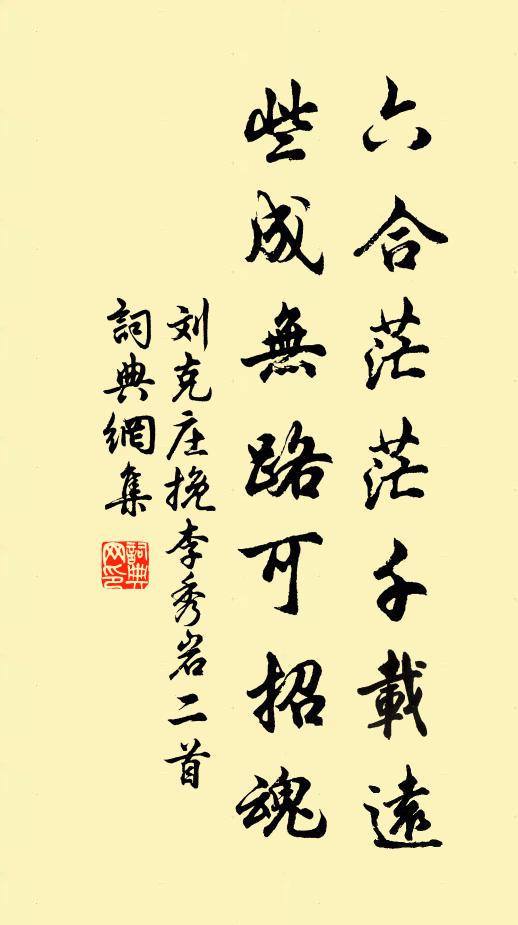 六合茫茫千載遠
些成無路可招魂
刘克庄挽李秀岩二首
詞典網集
詞典網印